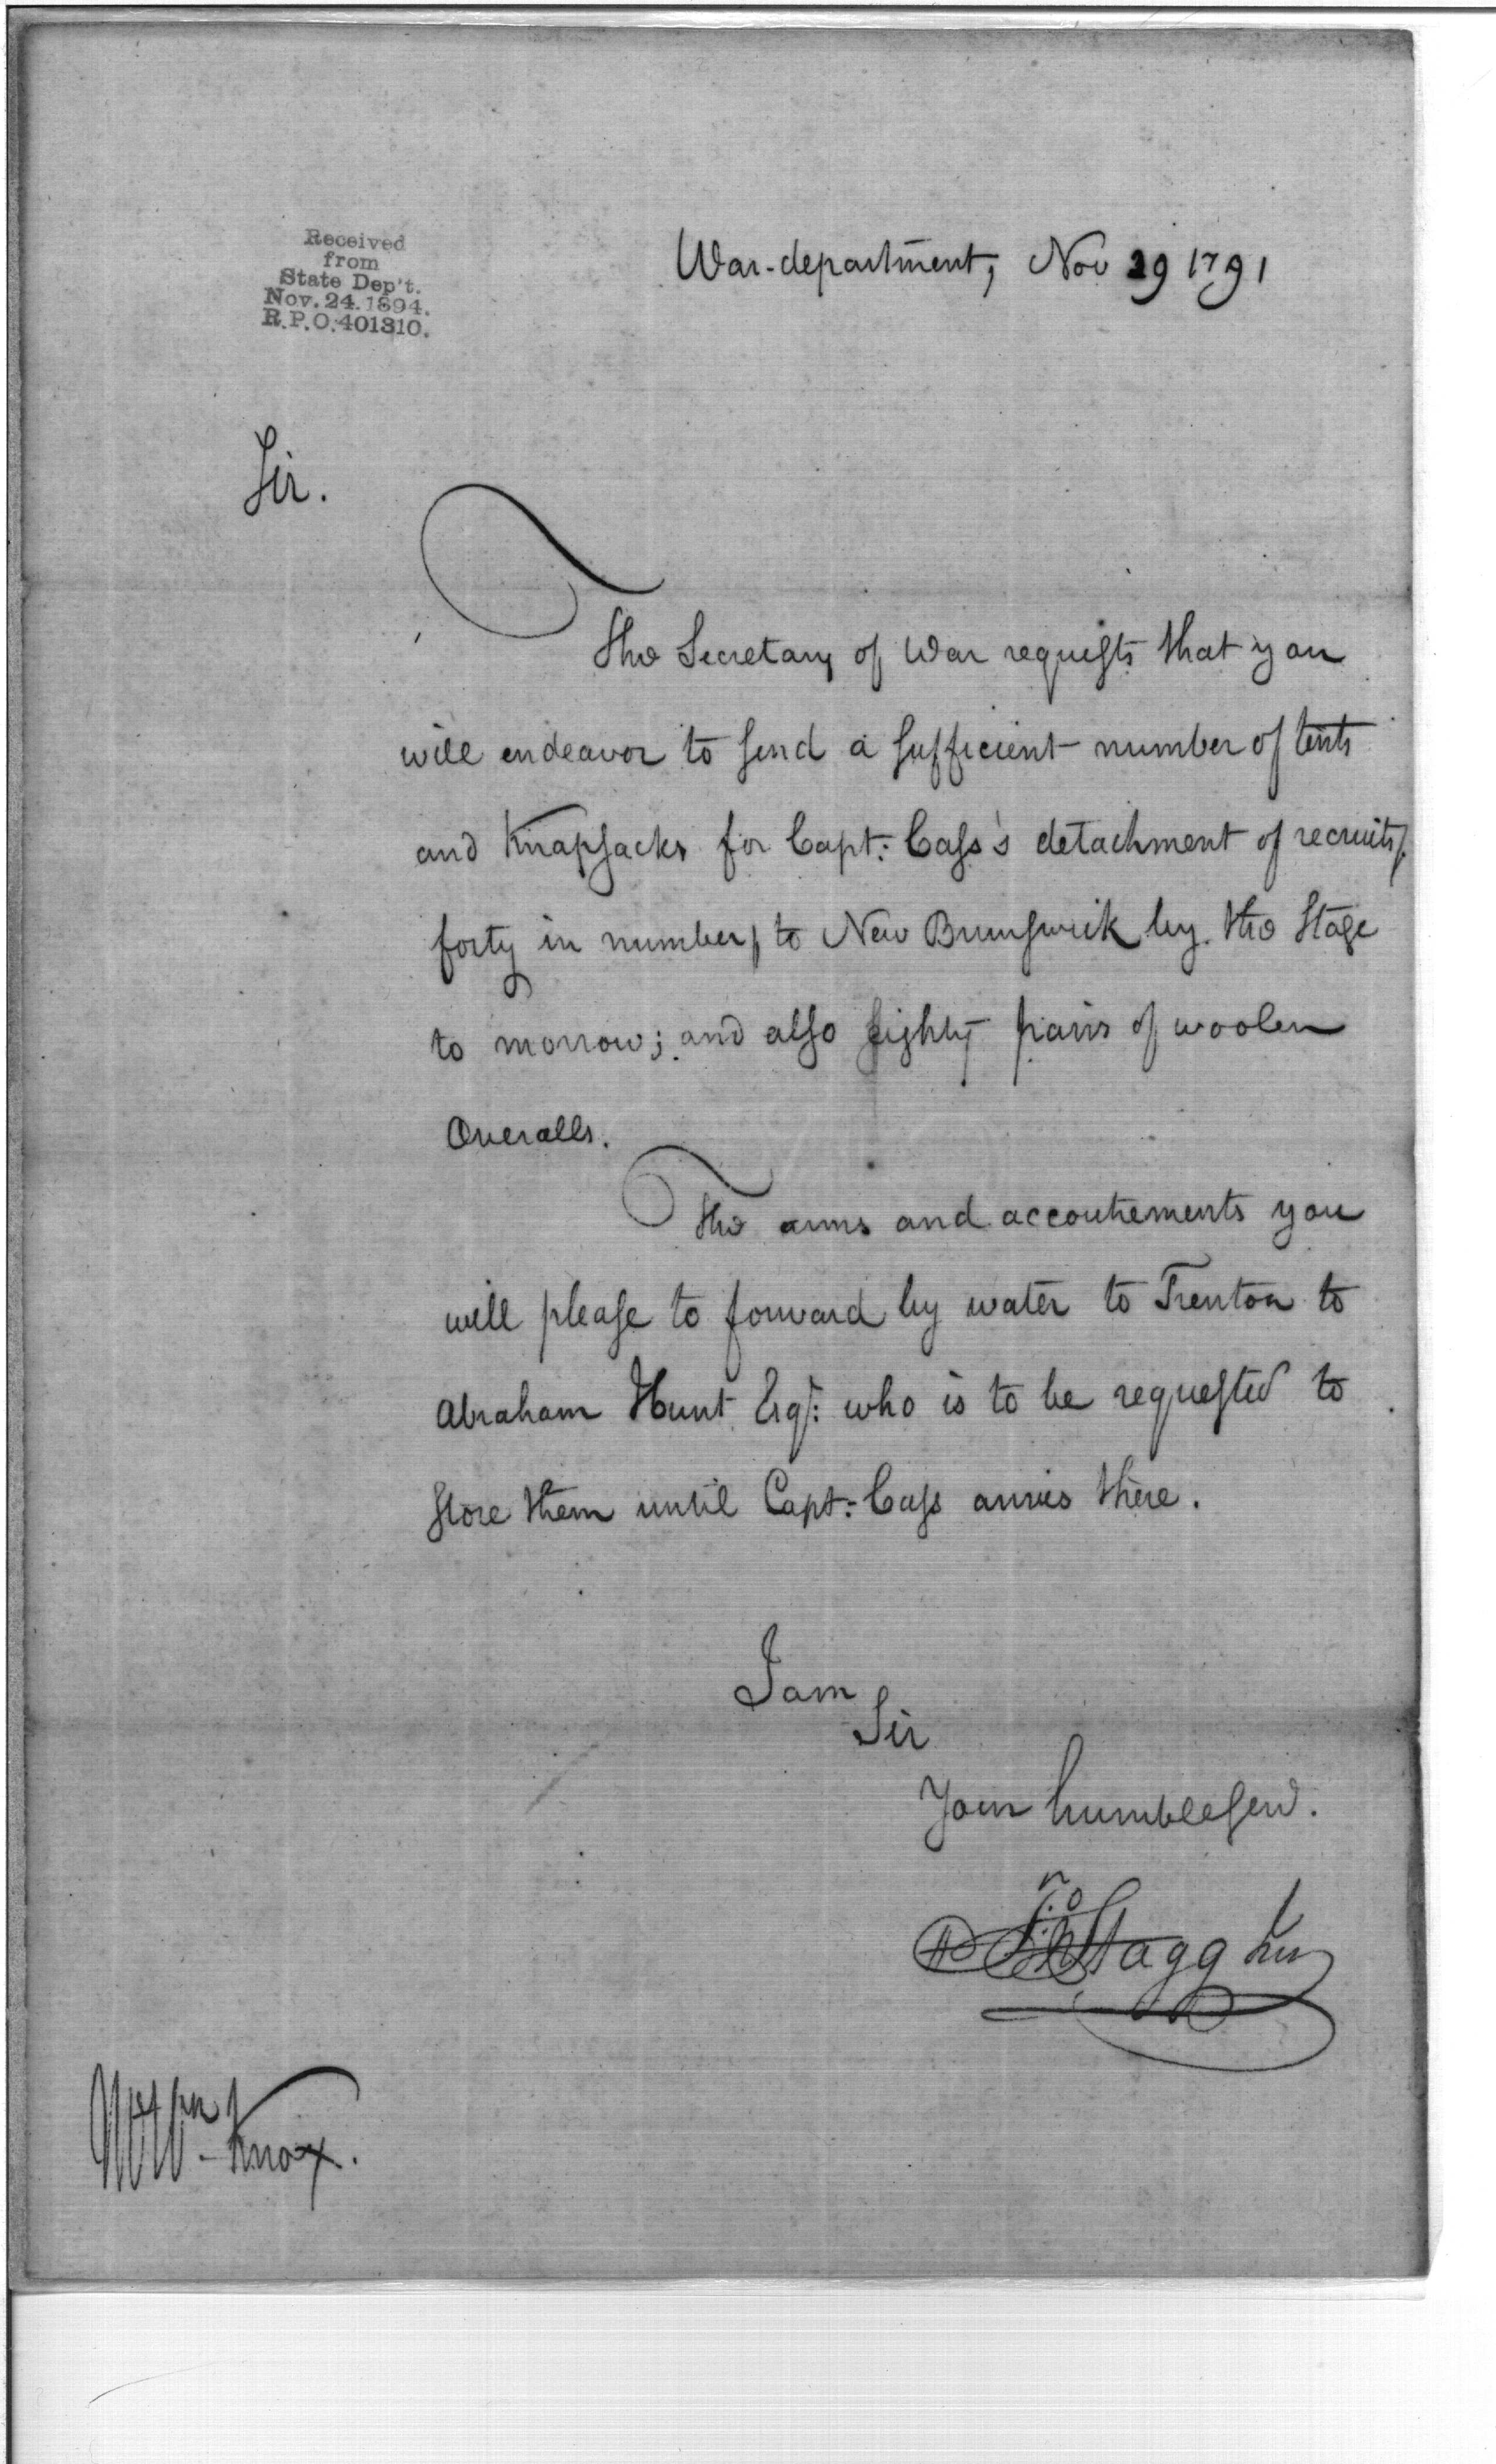 Received
from
State Dep't.
Nov. 24. 1894.
R.P.O. 401310.
War-department, Nov 29 1791
Sir.
The Secretary of War requests that you
will endeavor to send a sufficient number of tents
and Knapsacks for Capt: Cass's detachment of recruits,
forty in number, to New Brunswick by the Stage
to morrow; and also eighty pairs of woolen
Overalls.
The arms and accoutrements you
will please to forward by water to Trenton to
Abraham Hunt Esqr: who is to be requested to
store them until Capt: Cass arrives there.
I am
Sir
Your humble servt.
Jno Stagg Junr
Mr Wm Knox.